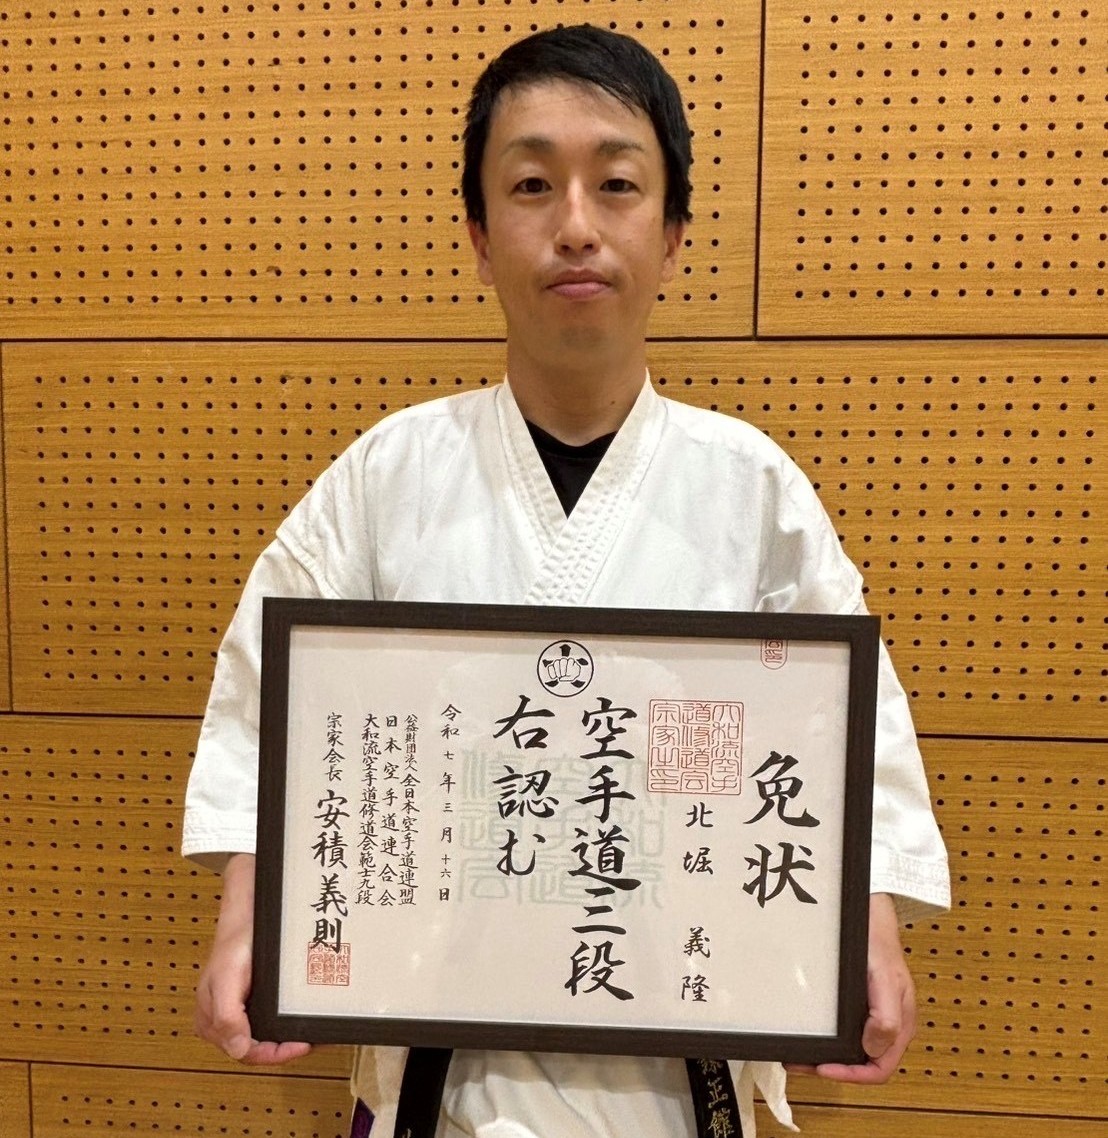 免状
北堀 義隆
大和流空手
道修道会
宗家之印
空手道三段
右認む
令和七年三月十六日
公益財団法人全日本空手道連盟
日本空手道連合会
大和流空手道修道会範士九段
宗家会長 安積義則
正館